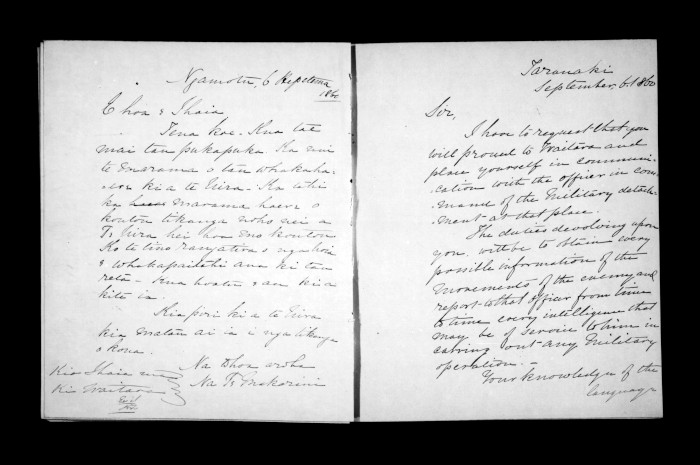 Ngamotu, 6 Hepetema
1860
E hoa e Ihaia
Tena koe. Kua tae
mai tau pukapuka. Ka nui
te marama o tau whakaha-
ere ki a te Tira. Ka tohi
ke marama haere o
koutou tikanga noho nei a
Te Tira hei hoa mo koutou
Ko te tino rangatira o nga hoia
e whakapaitehi ana ki tau
reta - Kua hoatu e au kia
kite ia.
Kia pori ki a te Tira
kia matau ai ia i nga tikanga
o kona.
Na thoa aroha
Na Te Makarini
Kia Ihaia
Kei Waitara
Taranaki
September, 6. 1860
Sir,
I have to request that you
will proceed to Waitara and
place yourself in communi-
-cation with the officer in com-
-mand of the Military detach-
-ment at that place.
The duties devolving upon
you will be to obtain every
possible information of the
movements of the enemy and
report to that officer from time
to time every intelligence that
may be of service to him in
carrying out any Military
operation. -
Your knowledge of the
language